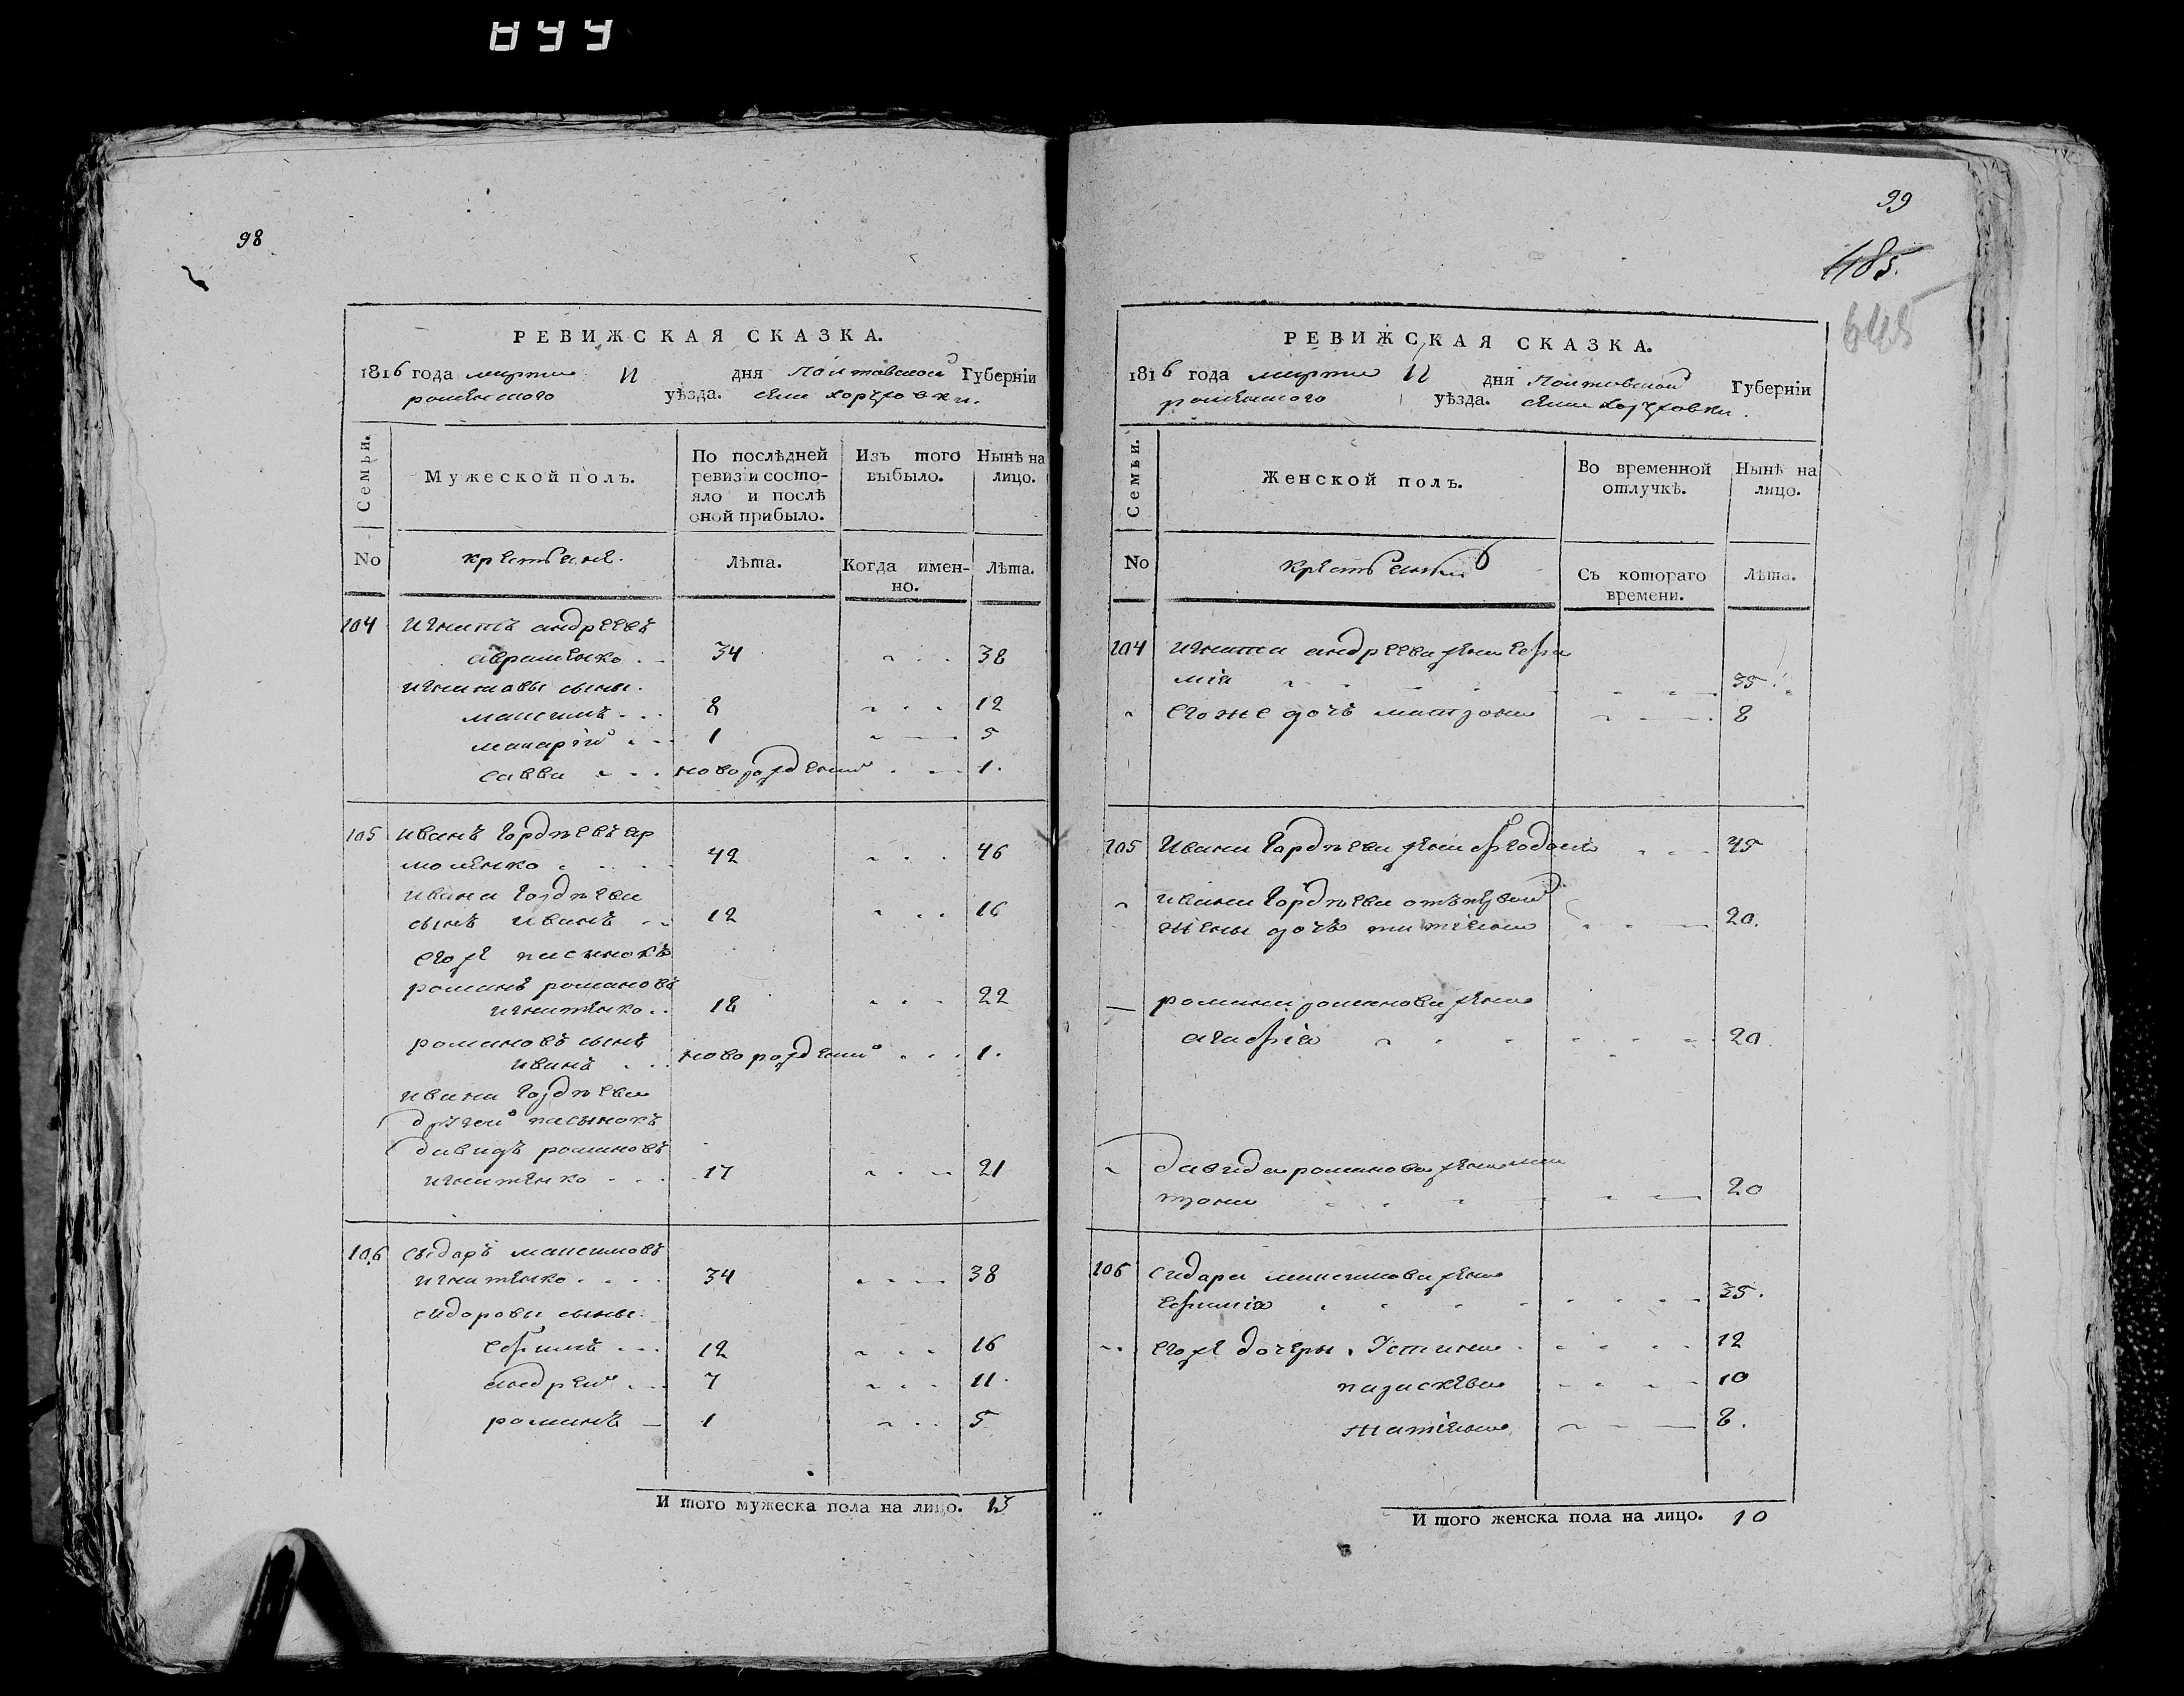 98
РЕВИЖСКАЯ СКАЗКА.
1816 года марта 11 дня Полтавской Губерніи
роменского уѣзда. села
Семьи.
Мужеской полъ.
По послѣдней ревизіи состояло и послѣ оной прибыло.
Изъ того выбыло.
Нынѣ на лицо.
No
крестьяне.
Лѣта.
Когда именно.
Лѣта.
104 игнатъ андреевъ
авраменко 34 38
игнатовы сыны.
максимъ 8 12
макарій 1 5
савва новорожденный 1.
105 иванъ гордѣевъ ярмоленко 42 46
ивана гордѣева
сынъ иванъ 12 16
егоже пасынокъ
романъ романовъ
игнатенко 18 22
романовъ сынъ
иванъ новорожденный 1.
ивана гордѣева
другой пасынокъ
давидъ романовъ
игнатенко 17 21
106 сидоръ максимовъ
игнатенко 34 38
сидоровы сыны.
ефимъ 12 16
андрей 7 11
романъ 1 5
И того мужеска пола на лицо. 13
99
485.
645
РЕВИЖСКАЯ СКАЗКА.
1816 года марта 11 дня Полтавской Губерніи
роменского уѣзда. села
Семьи.
Женской полъ.
Во временной отлучкѣ.
Нынѣ на лицо.
No
крестьянки
Съ котораго времени.
Лѣта.
104 игната андреева жена ефимія 35
егоже дочь матрона 8
105 Ивана гордѣева жена феодосія 45
ивана гордѣева отъ первой
жены дочь татіана 20.
романа романова жена
агафія 20
давида романова жена матрона 20
106 сидора максимова жена
ефимія 35.
егоже дочеры. Устина 12
параскева 10
татіана 8.
И того женска пола на лицо. 10